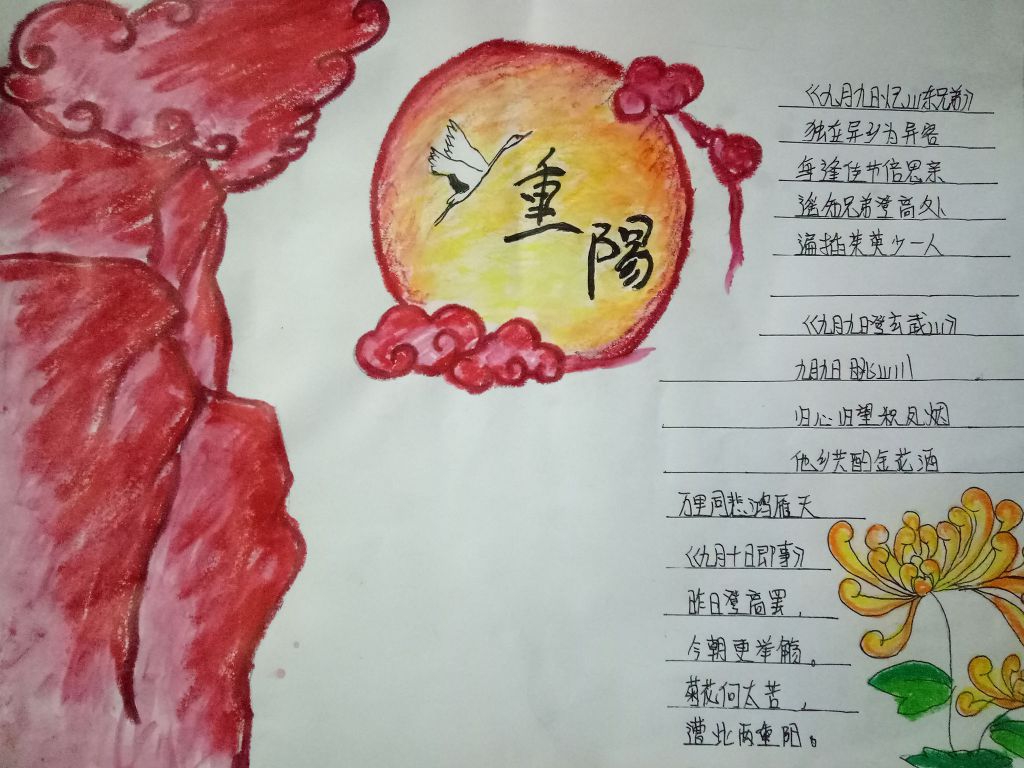 重陽
《九月九日忆山东兄弟》
独在异乡为异客
每逢佳节倍思亲
遥知兄弟登高处
遍插茱萸少一人
《九月九日登玄武山》
九月九日眺山川
归心归望积风烟
他乡共酌金花酒
万里同悲鸿雁天
《九月十日即事》
昨日登高罢，
今朝更举觞。
菊花何太苦，
遭此两重阳。